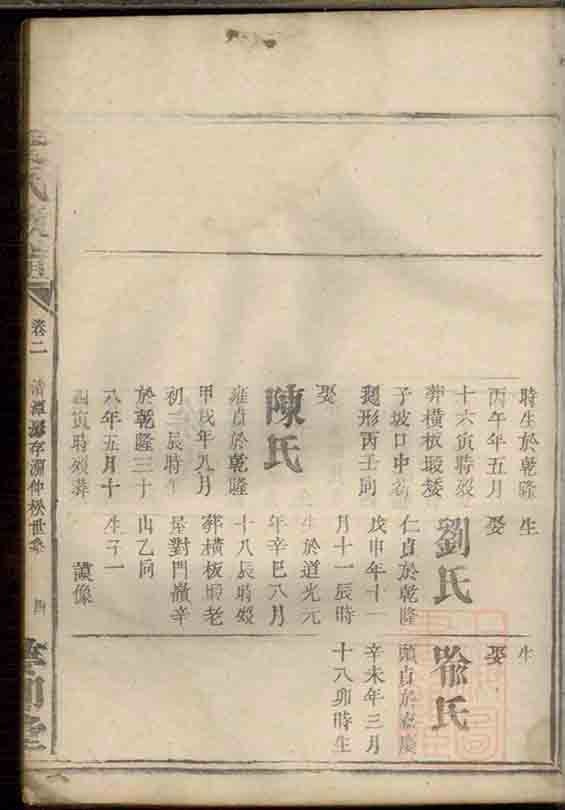 時生於乾隆
丙午年五月
十六寅時歿
葬橫板塅矮
子坡口中
鵝形丙壬向
娶
陳氏
雍貞於乾隆
甲戌年八月
初三辰時
於乾隆三十
八年五月十
四寅時歿葬
生
娶
劉氏
仁貞於乾隆
戊申年十一
月十一辰時
生於道光元
年辛巳八月
十八辰時歿
葬橫板塅老
屋對門嶺辛
山乙向
生子一
謨像
生
娶
喻氏
順貞於嘉慶
辛未年三月
十八卯時生
氏族譜
卷二
清潭 存源仲松世系
四